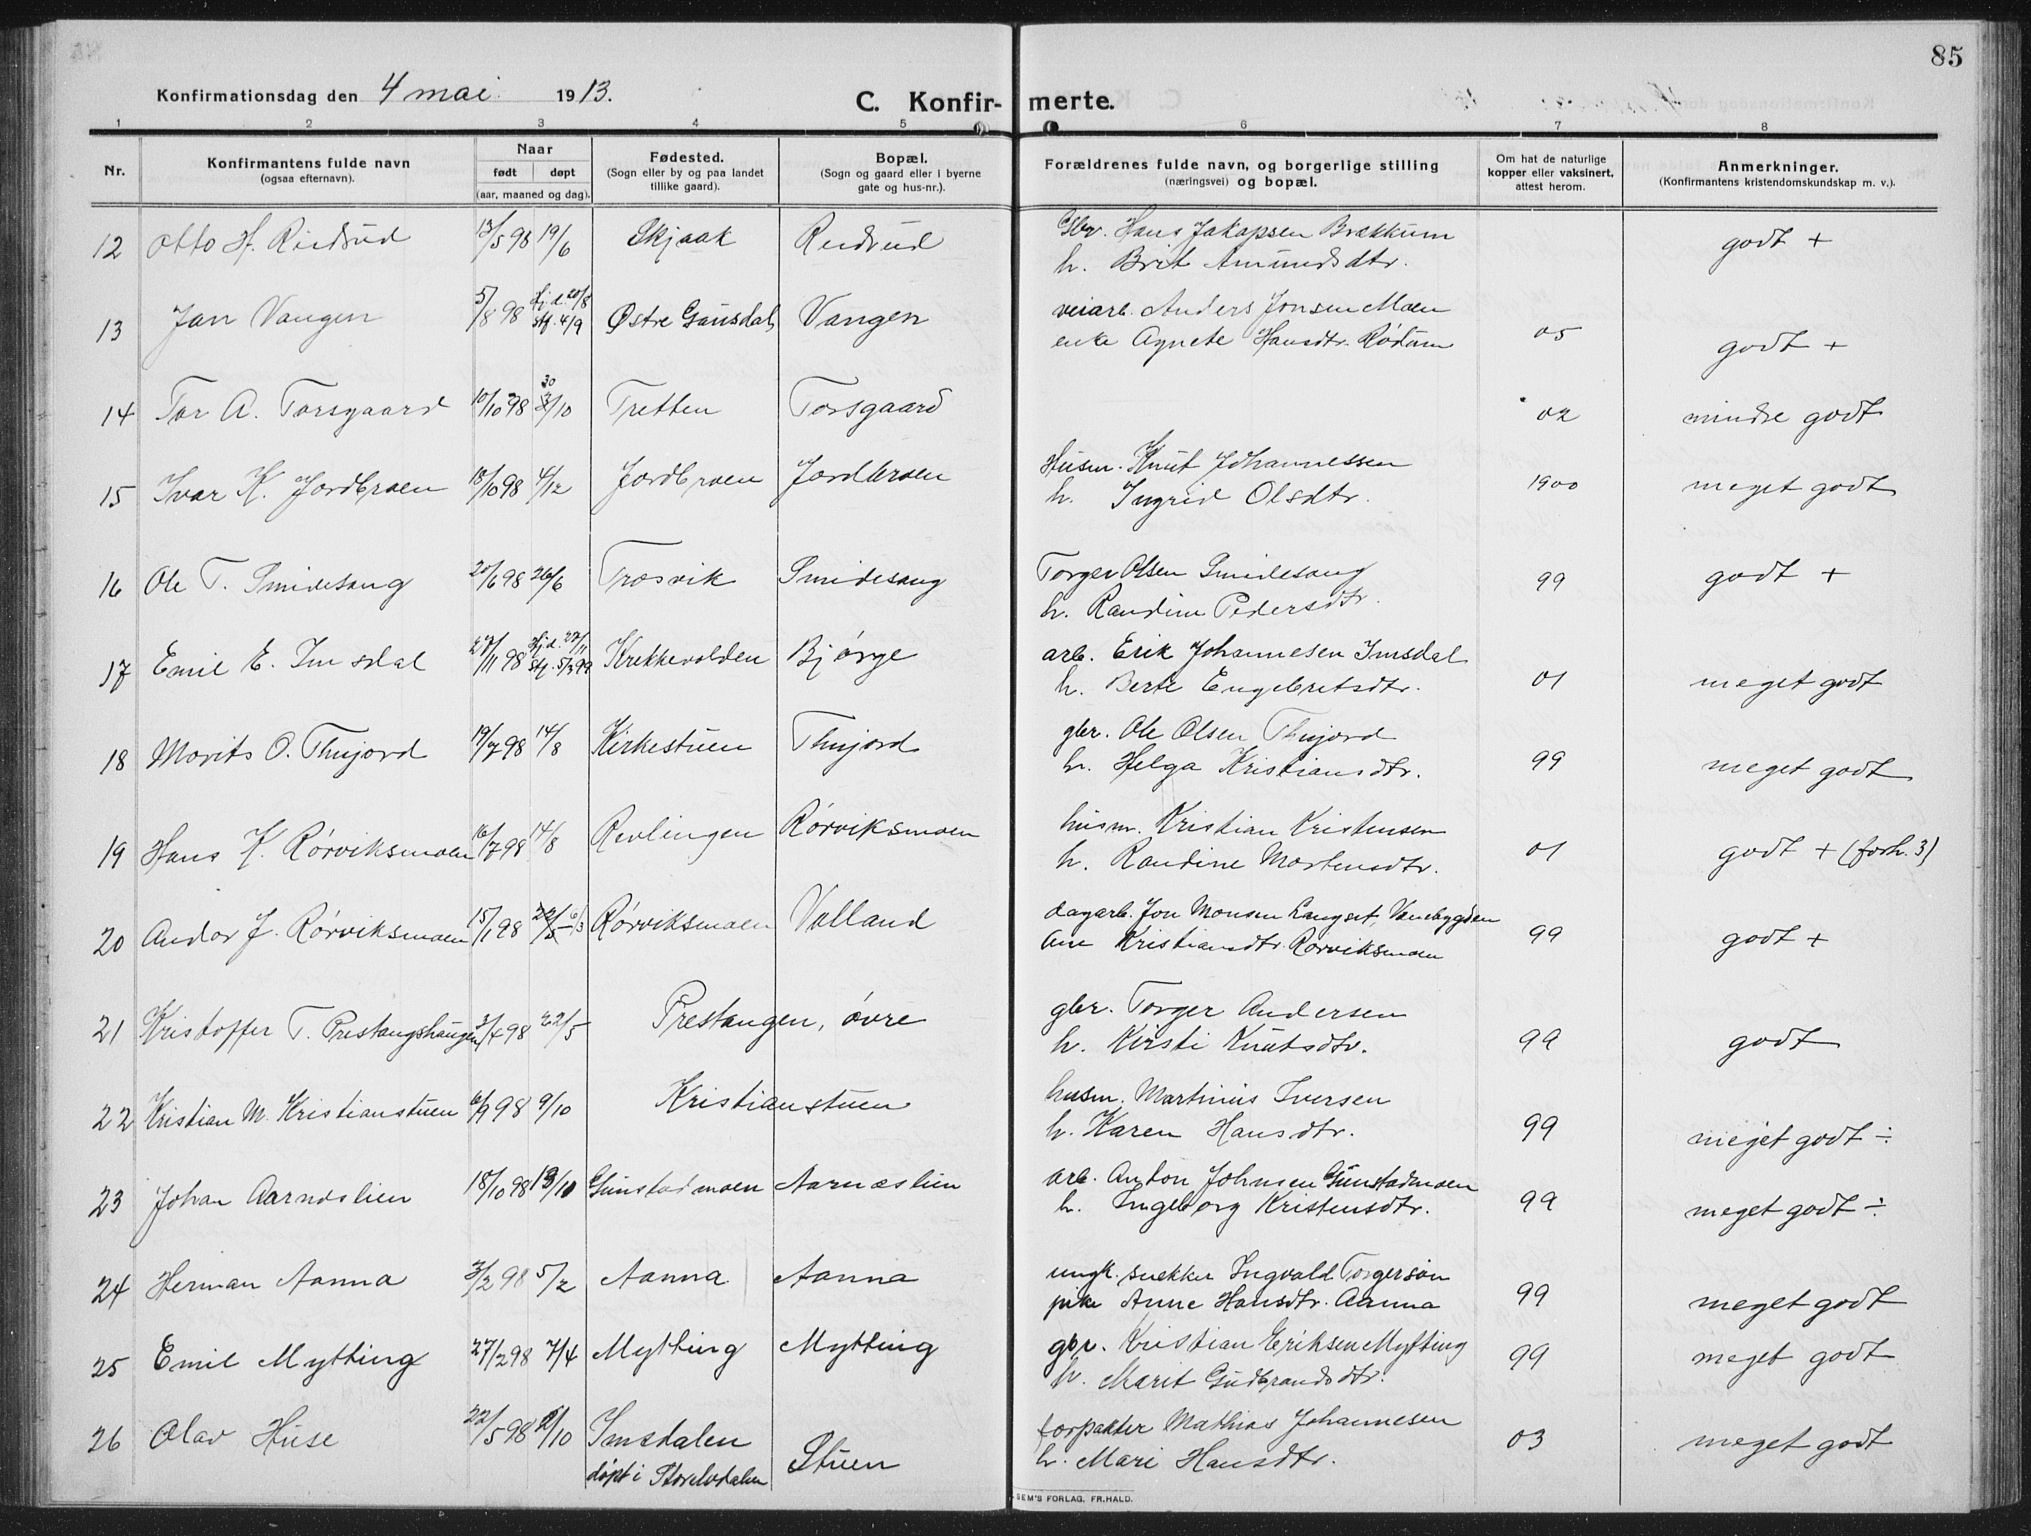 85
Konfirmationsdag den 4 mai 1913.
C. Konfirmerte.
1 2 3 4 5 6 7 8
Nr. Konfirmantens fulde navn (ogsaa efternavn). Naar født døpt (aar, maaned og dag). Fødested. (Sogn eller by og paa landet tillike gaard). Bopæl. (Sogn og gaard eller i byerne gate og hus-nr.). Forældrenes fulde navn, og borgerlige stilling (næringsvei) og bopæl. Om hat de naturlige kopper eller vaksinert, attest herom. Anmerkninger. (Konfirmantens kristendomskundskap m. v.).
12 Otto H. Rudsud 13/5 98 19/6 Skjaak Rudsud Gbr. Hans Jakopsen Brækkum
h. Brit Amundsdtr. godt +
13 Jan Vangen 5/8 98 hj.d. 20/8 stf. 4/9 Østre Gausdal Vangen veiarb. Anders Jonsen Moen
enke Agnete Hansdtr. Rødum 05 godt +
14 Tor A. Torsgaard 10/10 98 30/10 Tretten Torsgaard 02 mindre godt
15 Ivar K. Jordbroen 18/10 98 4/12 Jordbroen Jordbroen Husm. Knut Johannessen
h. Ingrid Olsdtr. 1900 meget godt
16 Ole T. Smidesang 20/6 98 26/6 Trosvik Smidesang Torger Olsen Smidesang
h. Randine Pedersdtr. 99 godt +
17 Emil E. Imsdal 27/11 98 hj.d. 27/11 stf. 5/3 99 Krekkevolden Bjørge arb. Erik Johannesen Imsdal
h. Berte Engebretsdtr. 01 meget godt
18 Morits O. Thujord 19/7 98 14/8 Kirkestuen Thujord gbr. Ole Olsen Thujord
h. Helga Kristiansdtr. 99 meget godt
19 Hans K. Rørviksmoen 16/7 98 14/8 Revlingen Rørviksmoen husm. Kristian Kristensen
h. Randine Mortensdtr. 01 godt + (forh. 3)
20 Andor J. Rørviksmoen 15/1 98 22/5 6/3 Rørviksmoen Volland dagarb. Jon Monsen Langset, Venebygden
Ane Kristiansdtr. Rørviksmoen 99 godt +
21 Kristoffer T. Prestangshaugen 3/4 98 22/5 Prestangen, øvre gbr. Torger Andersen
h. Kirsti Knutsdtr. 99 godt
22 Kristian M. Kristianstuen 6/9 98 9/10 Kristianstuen husm. Martinius Iversen
h. Karen Hansdtr. 99 meget godt ÷
23 Johan Aarnæslien 18/10 98 13/11 Gunstadmoen Aarnæslien arb. Anton Johnsen Gunstadmoen
h. Ingeborg Kristensdtr. 99 meget godt ÷
24 Herman Aanna 3/2 98 5/2 Aanna Aanna ungk. snekker Ingvald Torgerson
pike Anne Hansdtr. Aanna 99 meget godt
25 Emil Mytting 27/2 98 7/4 Mytting Mytting gbr. Kristian Eriksen Mytting
h. Marit Gudbrandsdtr. 99 meget godt
26 Olav Huse 22/5 98 2/10 Imsdalen
døpt i Storelvdalen Stuen forpakter Mathias Johannesen
h. Mari Hansdtr. 03 meget godt
SEM'S FORLAG, FR. HALD.